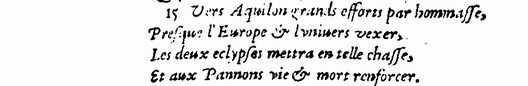 15 Vers Aquilon grands efforts par hommaſſe,
Preſque l'Europe & l'vniuers vexer,
Les deux eclypſes mettra en telle chaſſe,
Et aux Pannons vie & mort renforcer.